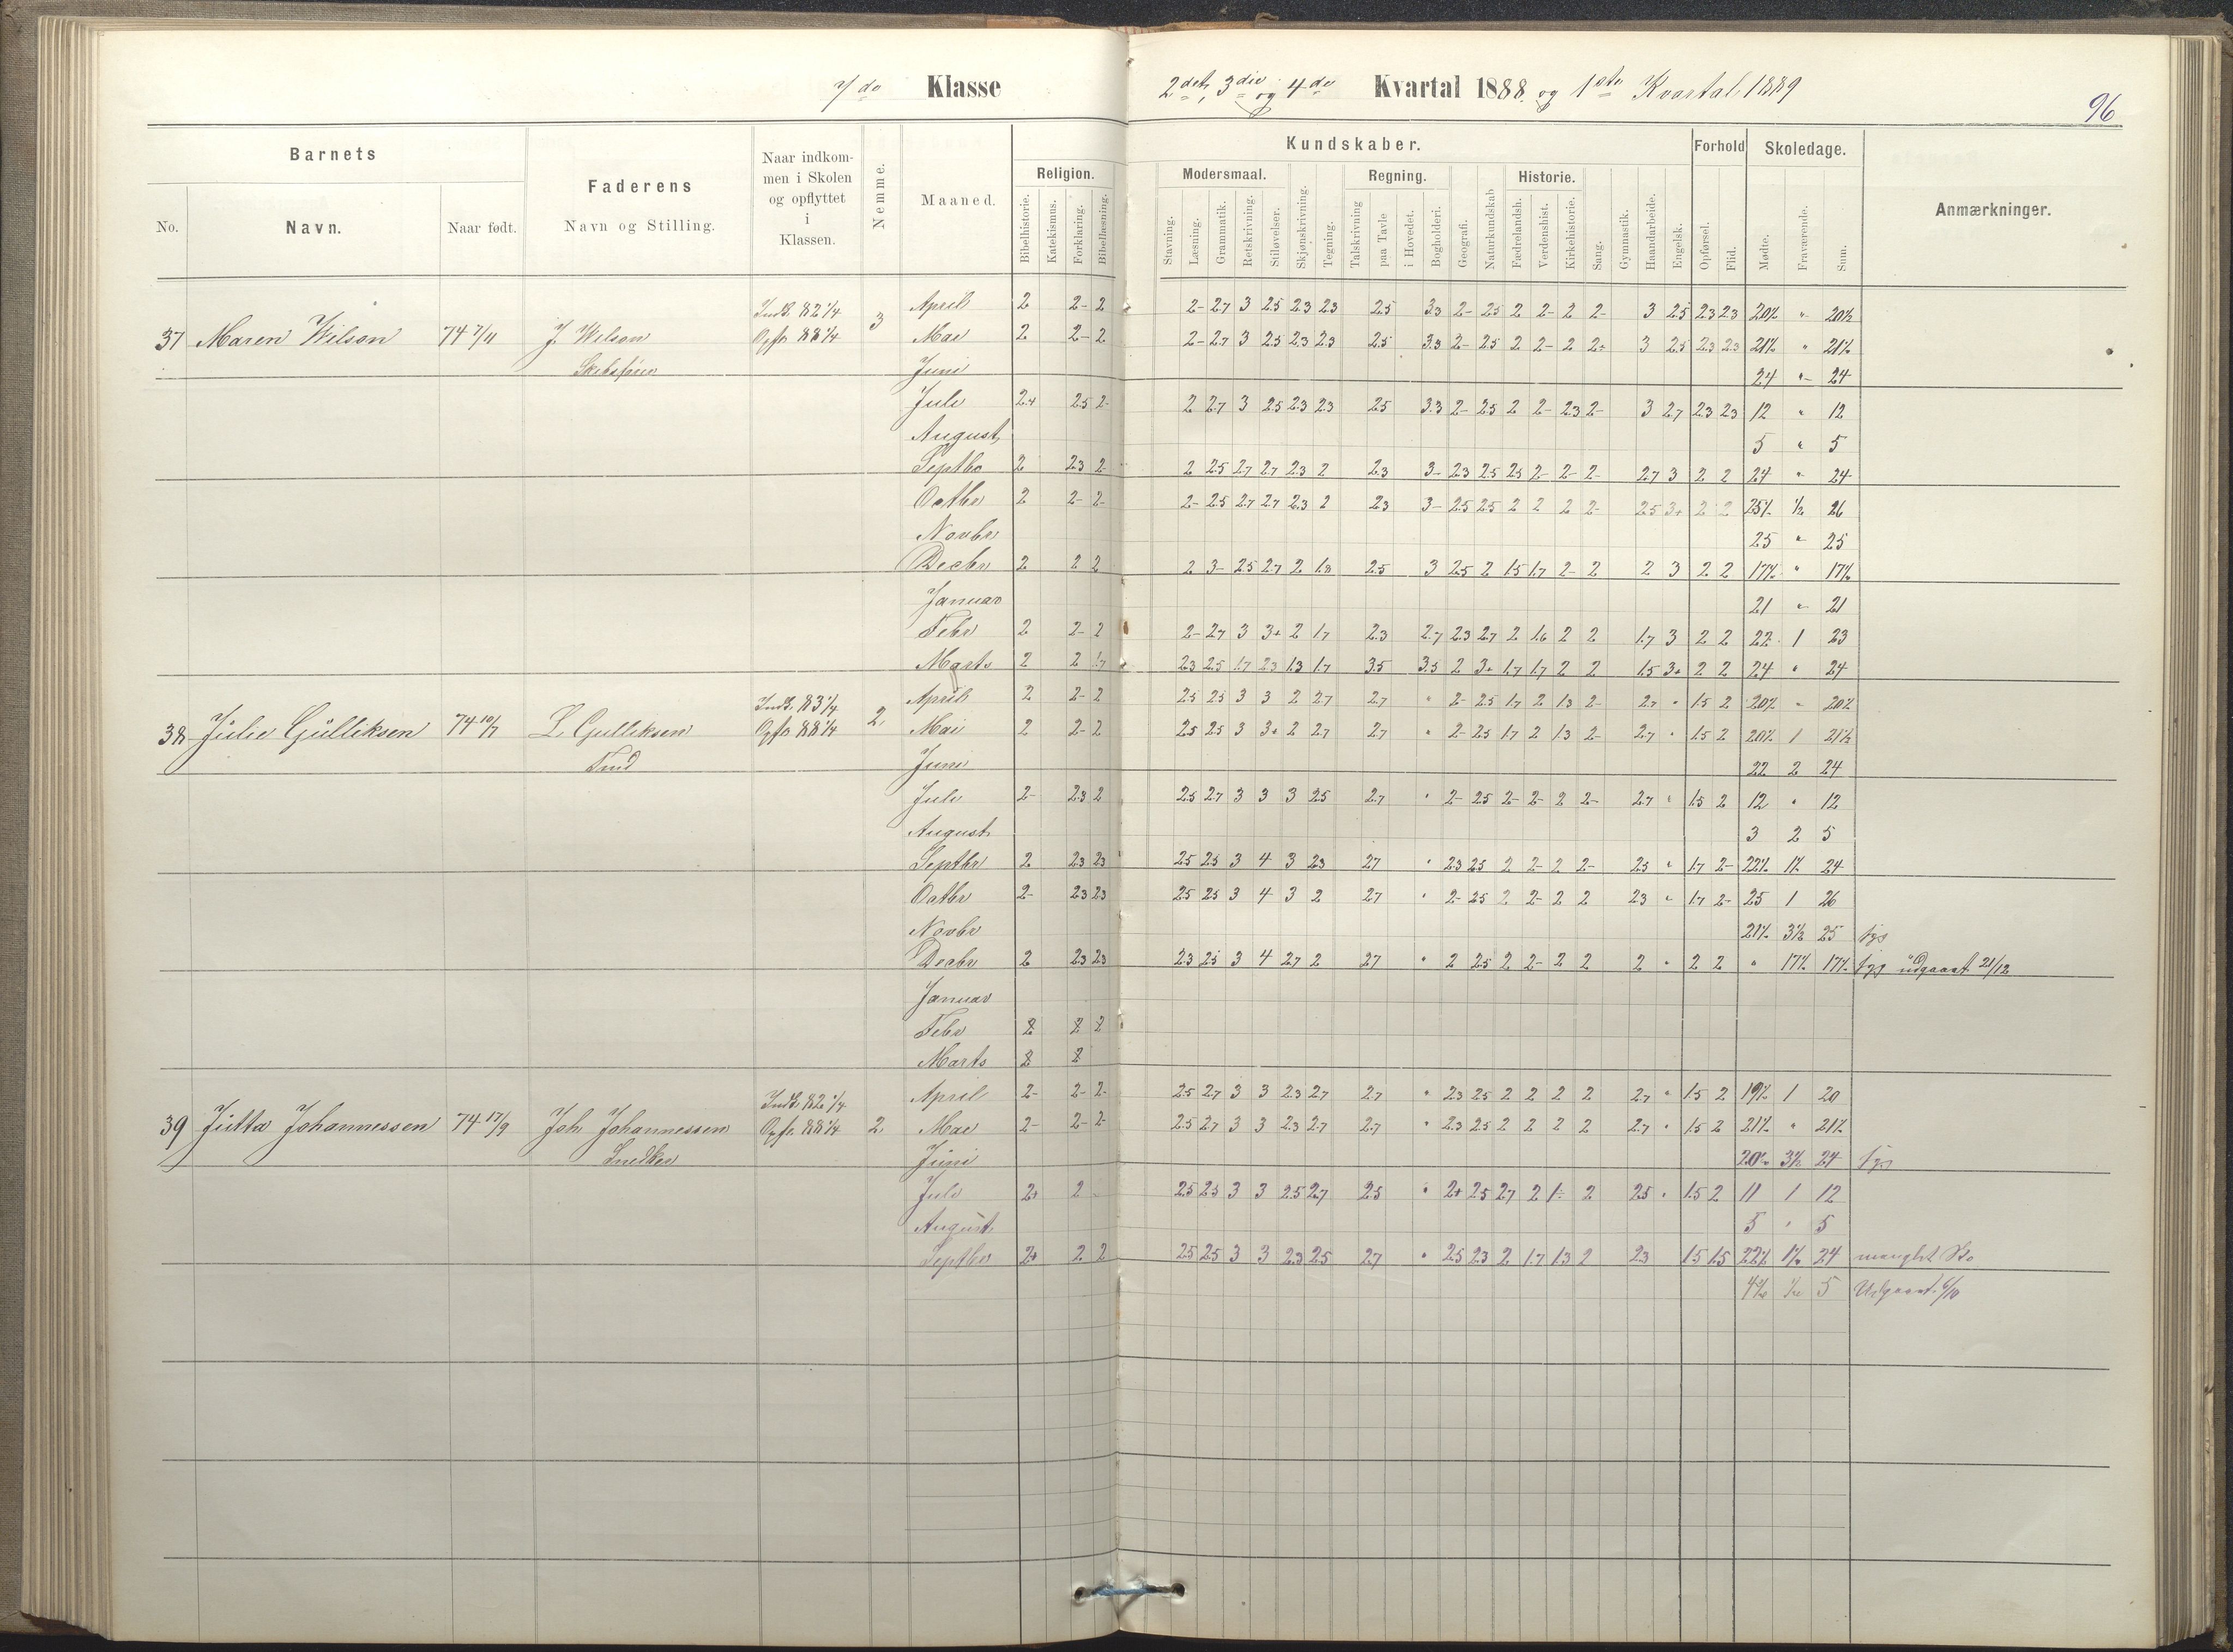 7de Klasse
2det, 3die og 4de Kvartal 1888 og 1ste Kvartal 1889
96
Barnets
Faderens
Naar indkommen i Skolen og opflyttet i Klassen.
Nemme.
Maaned.
Religion.
Kundskaber.
Modersmaal.
Regning.
Historie.
Forhold
Skoledage.
Anmærkninger.
No.
Navn.
Naar født.
Navn og Stilling.
Bibelhistorie.
Katekismus.
Forklaring.
Bibellæsning.
Stavning.
Læsning.
Grammatik.
Retskrivning.
Stiløvelser.
Skjønskrivning.
Tegning.
Talskrivning
paa Tavle
i Hovedet.
Bogholderi.
Geografi.
Naturkundskab
Fædrelandsh.
Verdenshist.
Kirkehistorie.
Sang.
Gymnastik.
Haandarbeide.
Engelsk.
Opførsel.
Flid.
Mødte.
Fraværende.
Sum.
37 Maren Wilson 74 7/11 J. Wilson Indk. 82 1/4 3 April 2 2- 2 2- 2.7 3 2.5 2.3 2.3 2.5 3.3 2- 2.5 2 2- 2 2- 3 2.5 2.3 2.3 20½ " 20½
Opfl 88 1/4 Mai 2 2- 2 2- 2.7 3 2.5 2.3 2.3 2.5 3.3 2- 2.5 2 2- 2 2+ 3 2.5 2.3 2.3 21½ " 21½
Juni 24 " 24
Juli 2+ 2.5 2- 2 2.7 3 2.5 2.3 2.3 2.5 3.3 2- 2.5 2 2- 2.3 2- 3 2.7 2.3 2.3 12 " 12
August 5 " 5
Septbr 2 2.3 2- 2 2.5 2.7 2.7 2.3 2 2.3 3- 2.3 2.5 2.5 2- 2- 2- 2.7 3 2 2 24 " 24
Octbr 2 2- 2- 2- 2.5 2.7 2.7 2.3 2 2.3 3- 2.5 2.5 2 2 2 2- 2.5 3+ 2 2 25½ ½ 26
Novbr 25 " 25
Decbr 2 2 2 2 3- 2.5 2.7 2 1.8 2.5 3 2.5 2 1.5 1.7 2- 2 2 3 2 2 17½ " 17½
Januar 21 " 21
Febr 2 2- 2 2- 2.7 3 3+ 2 1.7 2.3 2.7 2.3 2.7 2 1.6 2 2 1.7 3 2 2 22 1 23
Marts 2 2 1.7 2.3 2.5 1.7 2.3 1.3 1.7 3.5 3.5 2 3+ 1.7 1.7 2 2 1.5 3+ 2 2 24 " 24
38 Julie Gulliksen 74 10/7 L. Gulliksen Indk. 83 1/4 2. April 2 2- 2 2.5 2.5 3 3 2 2.7 2.7 " 2- 2.5 1.7 2 1.3 2- 2.7 " 1.5 2 20½ " 20½
Opfl 88 1/4 Mai 2 2- 2 2.5 2.5 3 3+ 2 2.7 2.7 " 2- 2.5 1.7 2 1.3 2- 2.7 " 1.5 2 20½ 1 21½
Juni 22 2 24
Juli 2- 2.3 2 2.5 2.7 3 3 3 2.5 2.7 " 2- 2.5 2- 2- 2 2- 2.7 " 1.5 2 12 " 12
August 3 2 5
Septbr 2 2.3 2.3 2.5 2.5 3 4 3 2.3 2.7 " 2.3 2.5 2 2- 2 2- 2.5 " 1.7 2- 22½ 1½ 24
Octbr 2- 2.3 2.3 2.5 2.5 3 4 3 2 2.7 " 2- 2.5 2 2- 2 2 2.3 " 1.7 2- 25 1 26
Novbr 21½ 3½ 25 syg
Decbr 2 2.3 2.3 2.3 2.5 3 4 2.7 2 2.7 " 2 2.5 2 2- 2 2 2 " 2 2 " 17½ 17½ syg udgaaet 21/12
Januar
Febr 2 2 2
Marts 2 2
39 Jutta Johannessen 74 17/9 Joh. Johannessen Indk. 82 1/4 April 2- 2- 2- 2.5 2.7 3 3 2.3 2.7 2.7 " 2.3 2.5 2 2 2 2 2.7 " 1.5 2 19½ 1 20
Snedker Opfl. 88 1/4 2. Mai 2- 2- 2- 2.5 2.7 3 3 2.3 2.7 2.7 " 2.3 2.5 2 2 2 2 2.7 " 1.5 2 21½ " 21½
Juni 20½ 3½ 24 syg
Juli 2+ 2 - 2.5 2.5 3 3 2.5 2.7 2.5 " 2+ 2.5 2.7 2 1- 2 2.5 " 1.5 2 11 1 12
August 5 " 5
Septbr 2+ 2 2 2.5 2.5 3 3 2.3 2.5 2.7 " 2.5 2.3 2 1.7 1.3 2 2.3 1.5 1.5 22½ 1½ 24 manglet Sko
4½ ½ 5 Udgaaet 6/10